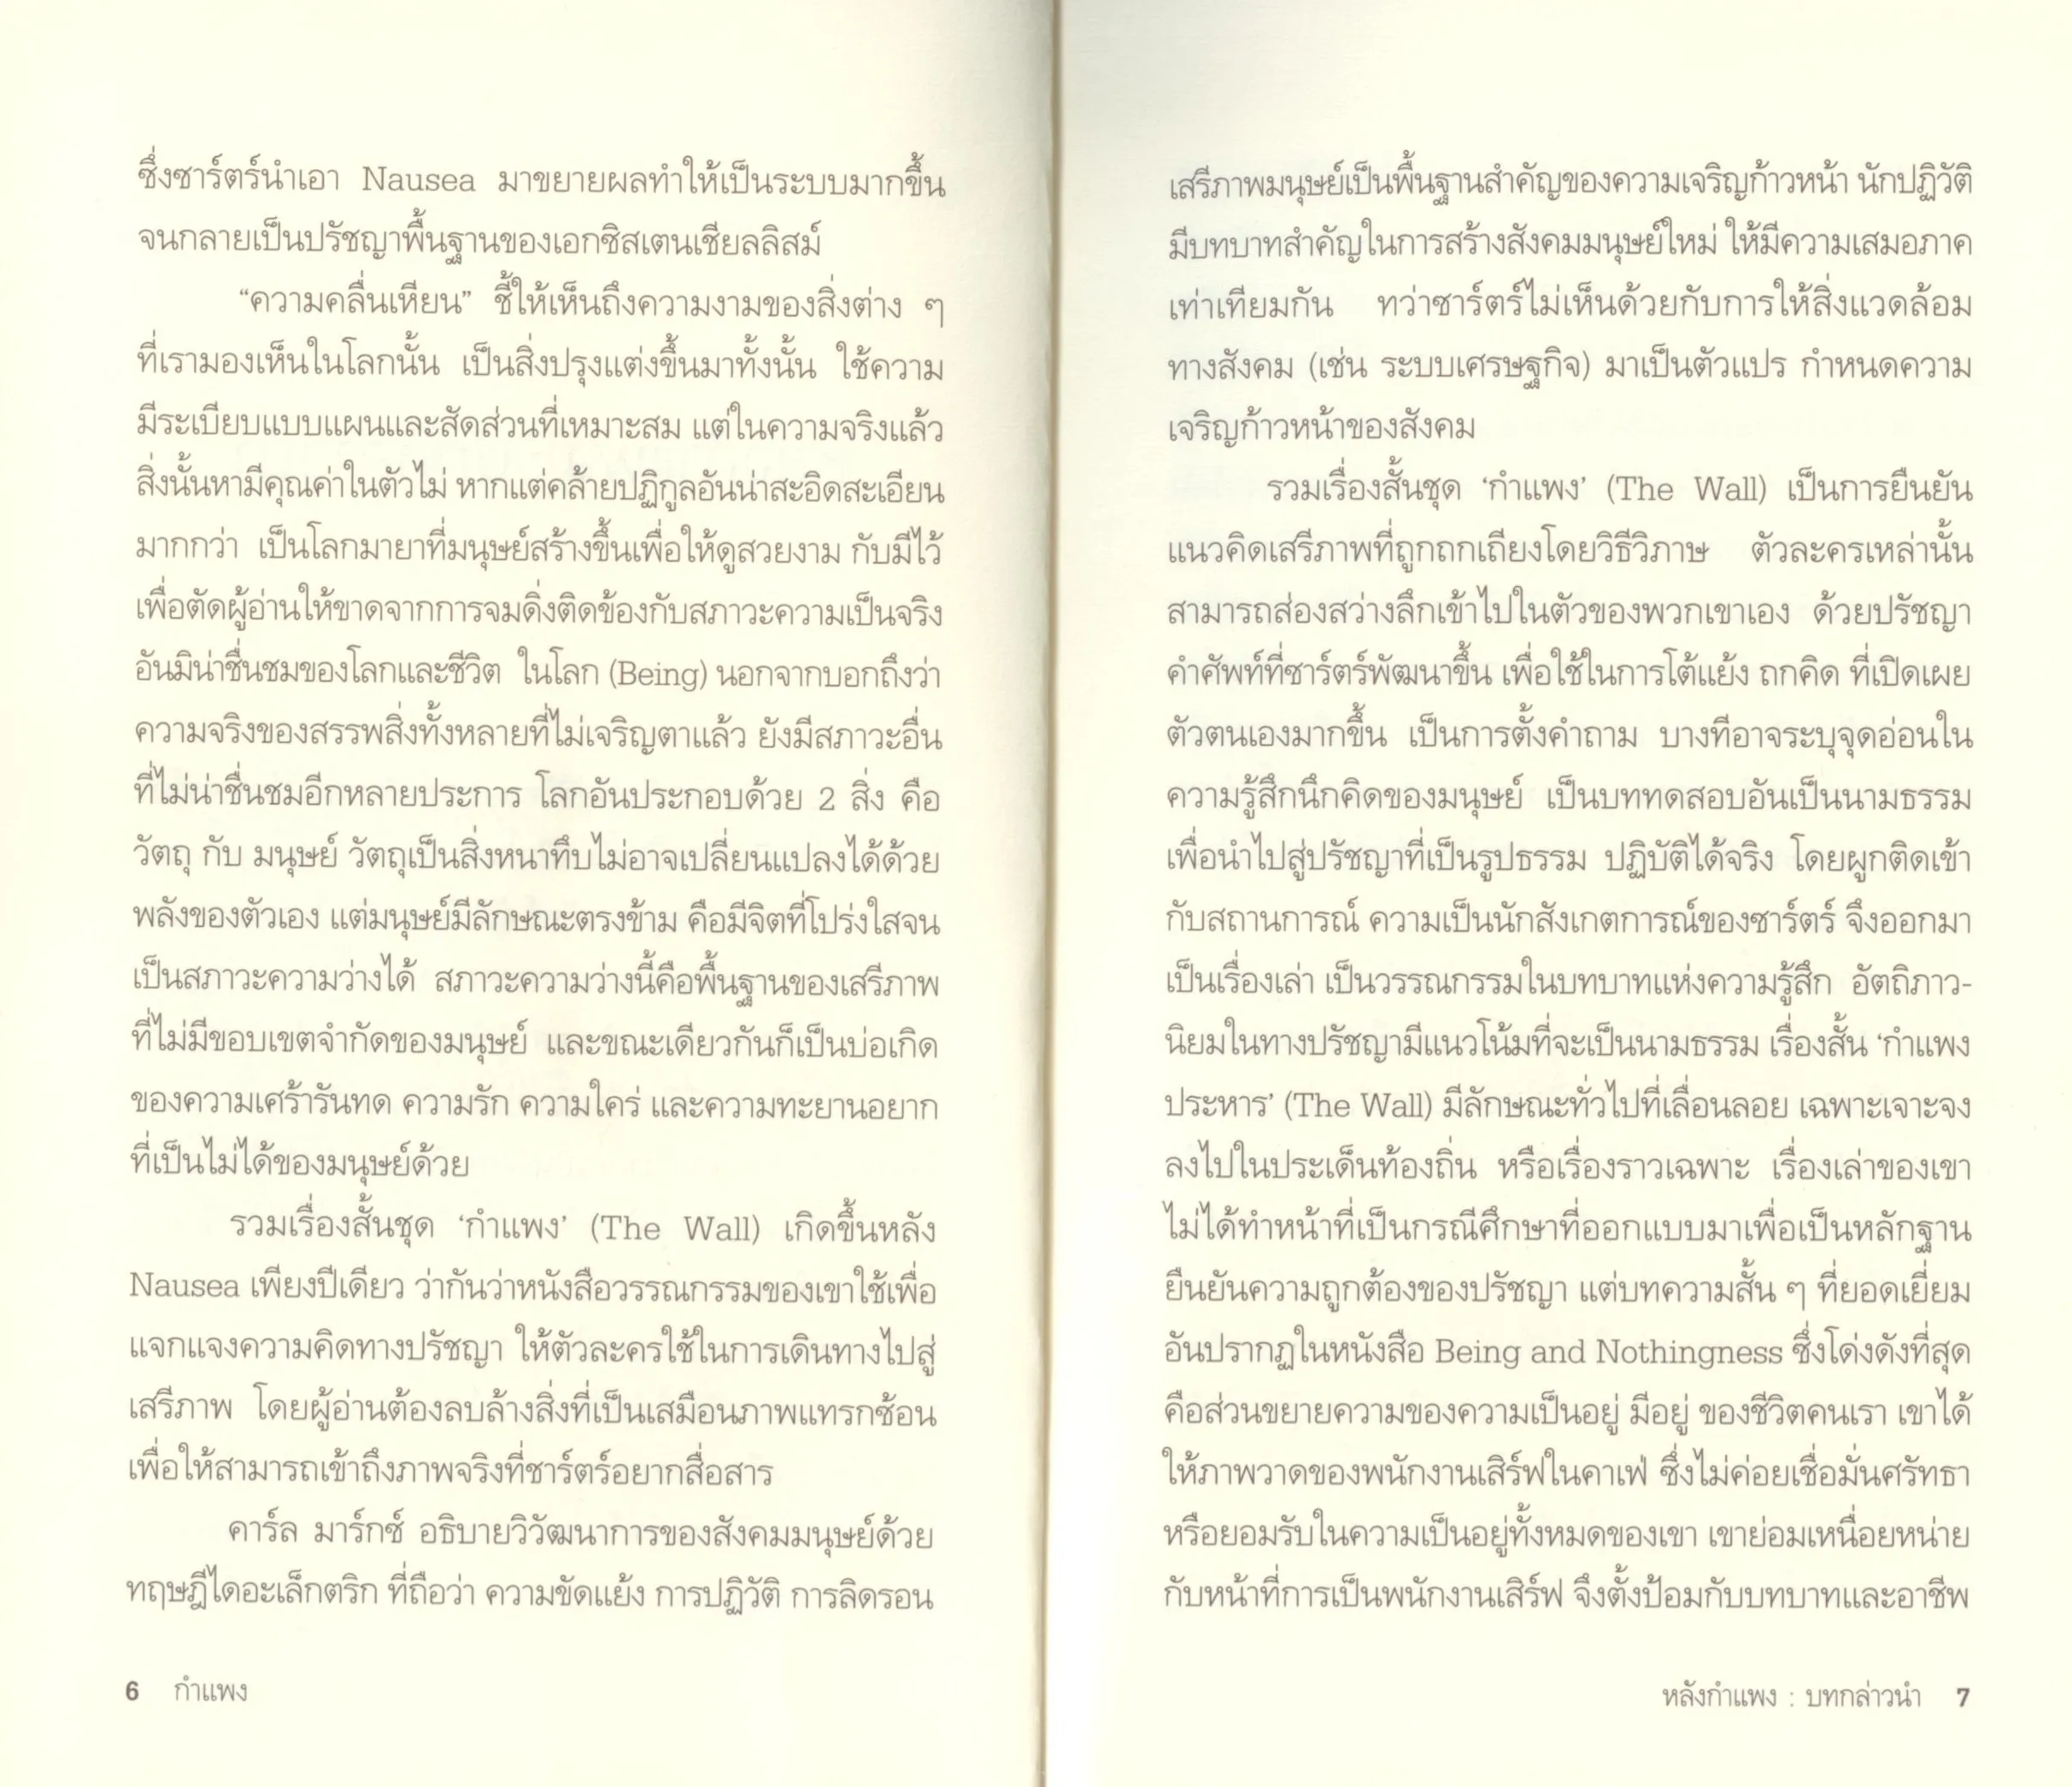 ซึ่งซาร์ตร์นำเอา Nausea มาขยายผลทำให้เป็นระบบมากขึ้น
จนกลายเป็นปรัชญาพื้นฐานของเอกซิสเตนเชียลลิสม์
“ความคลื่นเหียน” ชี้ให้เห็นถึงความงามของสิ่งต่าง ๆ
ที่เรามองเห็นในโลกนั้น เป็นสิ่งปรุงแต่งขึ้นมาทั้งนั้น ใช้ความ
มีระเบียบแบบแผนและสัดส่วนที่เหมาะสม แต่ในความจริงแล้ว
สิ่งนั้นหามีคุณค่าในตัวไม่ หากแต่คล้ายปฏิกูลอันน่าสะอิดสะเอียน
มากกว่า เป็นโลกมายาที่มนุษย์สร้างขึ้นเพื่อให้ดูสวยงาม กับมีไว้
เพื่อตัดผู้อ่านให้ขาดจากการจมดิ่งติดข้องกับสภาวะความเป็นจริง
อันมิน่าชื่นชมของโลกและชีวิต ในโลก (Being) นอกจากบอกถึงว่า
ความจริงของสรรพสิ่งทั้งหลายที่ไม่เจริญตาแล้ว ยังมีสภาวะอื่น
ที่ไม่น่าชื่นชมอีกหลายประการ โลกอันประกอบด้วย 2 สิ่ง คือ
วัตถุ กับ มนุษย์ วัตถุเป็นสิ่งหนาทึบไม่อาจเปลี่ยนแปลงได้ด้วย
พลังของตัวเอง แต่มนุษย์มีลักษณะตรงข้าม คือมีจิตที่โปร่งใสจน
เป็นสภาวะความว่างได้ สภาวะความว่างนี้คือพื้นฐานของเสรีภาพ
ที่ไม่มีขอบเขตจำกัดของมนุษย์ และขณะเดียวกันก็เป็นบ่อเกิด
ของความเศร้ารันทด ความรัก ความใคร่ และความทะยานอยาก
ที่เป็นไม่ได้ของมนุษย์ด้วย
รวมเรื่องสั้นชุด ‘กำแพง’ (The Wall) เกิดขึ้นหลัง
Nausea เพียงปีเดียว ว่ากันว่าหนังสือวรรณกรรมของเขาใช้เพื่อ
แจกแจงความคิดทางปรัชญา ให้ตัวละครใช้ในการเดินทางไปสู่
เสรีภาพ โดยผู้อ่านต้องลบล้างสิ่งที่เป็นเสมือนภาพแทรกซ้อน
เพื่อให้สามารถเข้าถึงภาพจริงที่ซาร์ตร์อยากสื่อสาร
คาร์ล มาร์กซ์ อธิบายวิวัฒนาการของสังคมมนุษย์ด้วย
ทฤษฎีไดอะเล็กตริก ที่ถือว่า ความขัดแย้ง การปฏิวัติ การลิดรอน
6 กำแพง
เสรีภาพมนุษย์เป็นพื้นฐานสำคัญของความเจริญก้าวหน้า นักปฏิวัติ
มีบทบาทสำคัญในการสร้างสังคมมนุษย์ใหม่ ให้มีความเสมอภาค
เท่าเทียมกัน ทว่าซาร์ตร์ไม่เห็นด้วยกับการให้สิ่งแวดล้อม
ทางสังคม (เช่น ระบบเศรษฐกิจ) มาเป็นตัวแปร กำหนดความ
เจริญก้าวหน้าของสังคม
รวมเรื่องสั้นชุด ‘กำแพง’ (The Wall) เป็นการยืนยัน
แนวคิดเสรีภาพที่ถูกถกเถียงโดยวิธีวิภาษ ตัวละครเหล่านั้น
สามารถส่องสว่างลึกเข้าไปในตัวของพวกเขาเอง ด้วยปรัชญา
คำศัพท์ที่ซาร์ตร์พัฒนาขึ้น เพื่อใช้ในการโต้แย้ง ถกคิด ที่เปิดเผย
ตัวตนเองมากขึ้น เป็นการตั้งคำถาม บางทีอาจระบุจุดอ่อนใน
ความรู้สึกนึกคิดของมนุษย์ เป็นบททดสอบอันเป็นนามธรรม
เพื่อนำไปสู่ปรัชญาที่เป็นรูปธรรม ปฏิบัติได้จริง โดยผูกติดเข้า
กับสถานการณ์ ความเป็นนักสังเกตการณ์ของซาร์ตร์ จึงออกมา
เป็นเรื่องเล่า เป็นวรรณกรรมในบทบาทแห่งความรู้สึก อัตถิภาว-
นิยมในทางปรัชญามีแนวโน้มที่จะเป็นนามธรรม เรื่องสั้น ‘กำแพง
ประหาร’ (The Wall) มีลักษณะทั่วไปที่เลื่อนลอย เฉพาะเจาะจง
ลงไปในประเด็นท้องถิ่น หรือเรื่องราวเฉพาะ เรื่องเล่าของเขา
ไม่ได้ทำหน้าที่เป็นกรณีศึกษาที่ออกแบบมาเพื่อเป็นหลักฐาน
ยืนยันความถูกต้องของปรัชญา แต่บทความสั้น ๆ ที่ยอดเยี่ยม
อันปรากฏในหนังสือ Being and Nothingness ซึ่งโด่งดังที่สุด
คือส่วนขยายความของความเป็นอยู่ มีอยู่ ของชีวิตคนเรา เขาได้
ให้ภาพวาดของพนักงานเสิร์ฟในคาเฟ่ ซึ่งไม่ค่อยเชื่อมั่นศรัทธา
หรือยอมรับในความเป็นอยู่ทั้งหมดของเขา เขาย่อมเหนื่อยหน่าย
กับหน้าที่การเป็นพนักงานเสิร์ฟ จึงตั้งป้อมกับบทบาทและอาชีพ
หลังกำแพง : บทกล่าวนำ 7